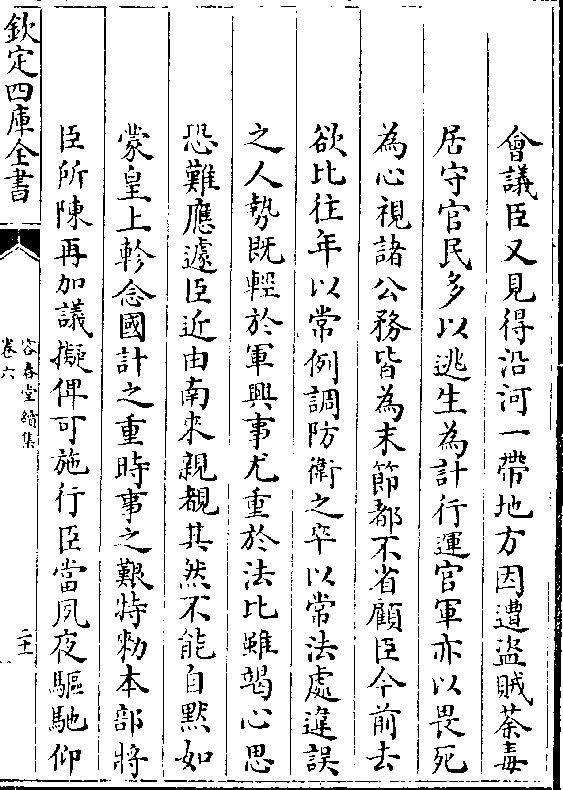 會議臣又見得沿河一帶地方因遭盜賊荼毒
居守官民多以逃生為計行運官軍亦以畏死
為心視諸公務皆為末節都不省顧臣今前去
欲比往年以常例調防衛之卒以常法處違誤
之人勢既輕於軍興事尤重於法比雖竭心思
恐難應遽臣近由南來親覩其然不能自黙如
蒙皇上軫念國計之重時事之艱特勑本部將
臣所陳再加議擬俾可施行臣當夙夜驅馳仰
欽定四庫全書
容春堂續集
卷六
二十一